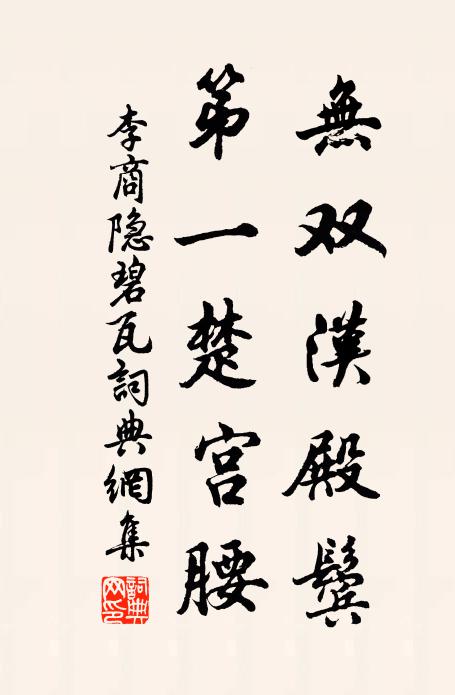 無双漢殿鬓
第一楚宫腰
李商隐碧瓦詞典網集
詞典網印